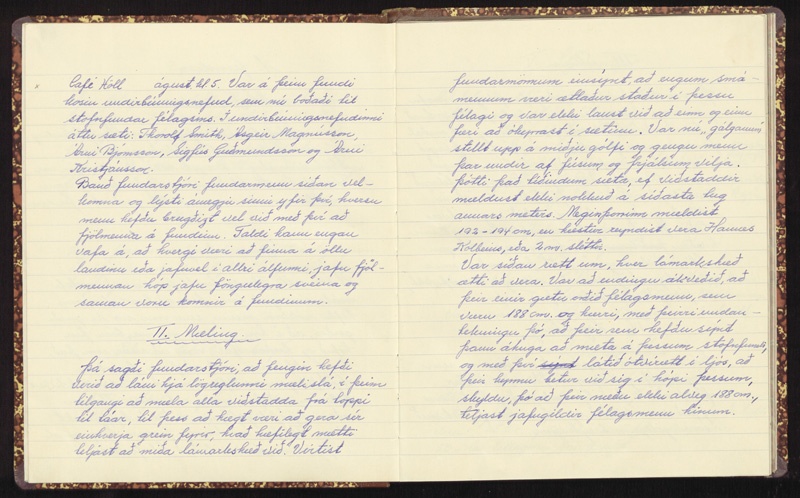 Café Höll ágúst kl 5. Var á þeim fundi
kosin undirbúningsnefnd, sem nú boðaði til
stofnfundar félagsins. Í undirbúningsnefndinni
áttu sæti: Thorolf Smith, Ásgeir Magnússon,
Árni Björnsson, Sigfús Guðmundsson og Árni
Kristjánsson.
Bauð fundarstjóri fundarmenn síðan vel-
komna og lýsti ánægju sinni yfir því, hversu
menn hefðu brugðizt vel við með því að
fjölmenna á fundinn. Taldi hann engan
vafa á, að hvergi væri að finna á öllu
landinu eða jafnvel í allri álfunni, jafn fjöl-
mennan hóp jafn föngulegra sveina og
saman voru komnir á fundinum.
II. Mæling.
Þá sagði fundarstjóri, að fengin hefði
verið að láni hjá lögreglunni mælistá, í þeim
tilgangi að mæla alla viðstadda frá toppi
til táar, til þess að hægt væri að gera sér
einhverja grein fyrir, hvað hæfilegt mætti
teljast að miða lámarkshæð við. Virtist
fundarmönnum einsýnt, að engum smá-
mennum væri ætlaður staður í þessu
félagi og var ekki laust við að einn og einn
færi að ókyrrast í sætinu. Var nú gálganum
stillt upp á miðju gólfi og gengu menn
þar undir af fúsum og frjálsum vilja.
Þótti það tíðindum sæta, ef viðstaddir
mældust ekki nokkuð á síðasta tug
annars meters. Meginþorrinn mældist
192 - 194 cm, en hæstur reyndist vera Hannes
Kolbeins, eða 2 m. sléttir.
Var síðan rætt um, hver lámarkshæð
ætti að vera. Var að endingu ákveðið, að
þeir einir gætu orðið félagsmenn, sem
væru 188 cm. og hærri, með þeirri undan-
tekningu þó, að þeir sem hefðu sýnt
þann áhuga að mæta á þessum stofnfundi,
og með því sýnt látið ótvírætt í ljós, að
þeir kynnu betur við sig í hópi þessum,
skyldu, þó að þeir næðu ekki alveg 188 cm.,
teljast jafngildir félagsmenn hinum.